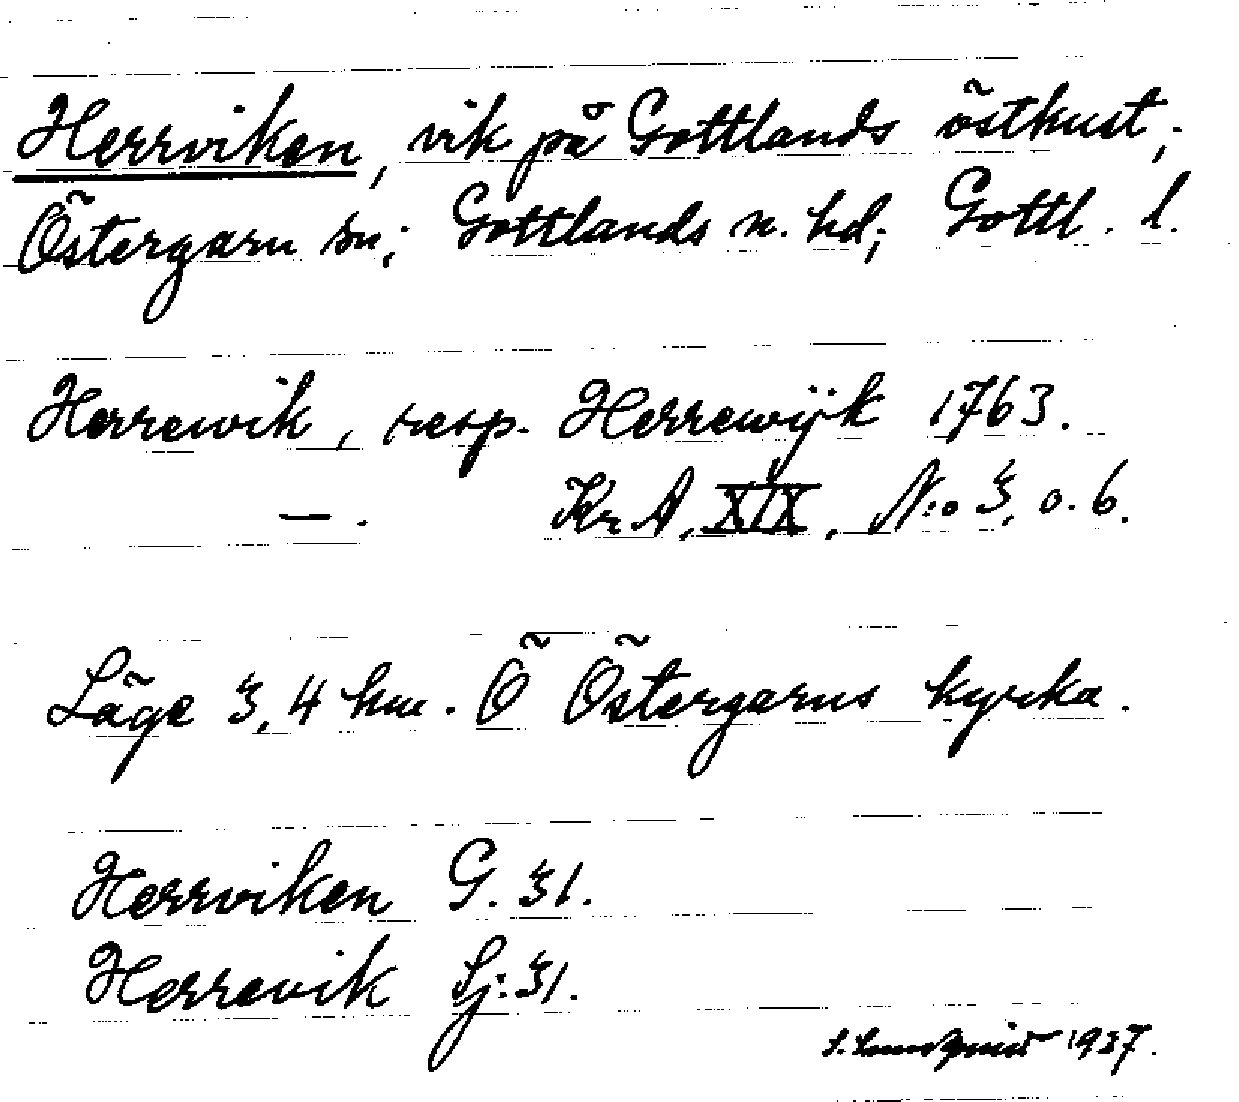 Herrviken, vik på Gottlands östkust;
Östergarn sn; Gottlands n. hd; Gottl. l.
Herrewik, resp. Herrewijk 1763.
—. Kr. A, XIX, N:o 3, o. 6.
Läge 3,4 km. Ö Östergarns kyrka.
Herrviken G. 31.
Herrevik Sj: 31.
1937.